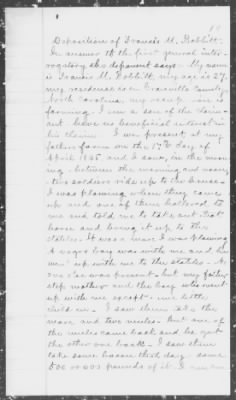 Deposition of Francis M. Bobbitt.
In answer to the first general inter-
rogatory the deponent says. My name
is Francis M. Bobbitt, my age is 27,
my residence is in Granville County
North Carolina, my occup. is
farming. I am a son of the claim-
ant have no beneficial interest in
his claim. I was present, at my
fathers farm on the 17th day of
April 1865, and I saw, in the morn-
ing, between the morning and
two soldiers ride up to the house
I was plowing when they came
up and one of them hallooed to
me and told me to take out that
horse and bring it up to the
stables. It was a mare I was plowing
A negro boy was with me and he
went up with me to the stables. No
one else was present but my father
step mother and the boy who went
up with me except little
children. I saw them take the
mare and two mules. but one of
the mules came back and he got
the other one back. I saw them
take some bacon that day. some
500 or 600 pounds of it. I